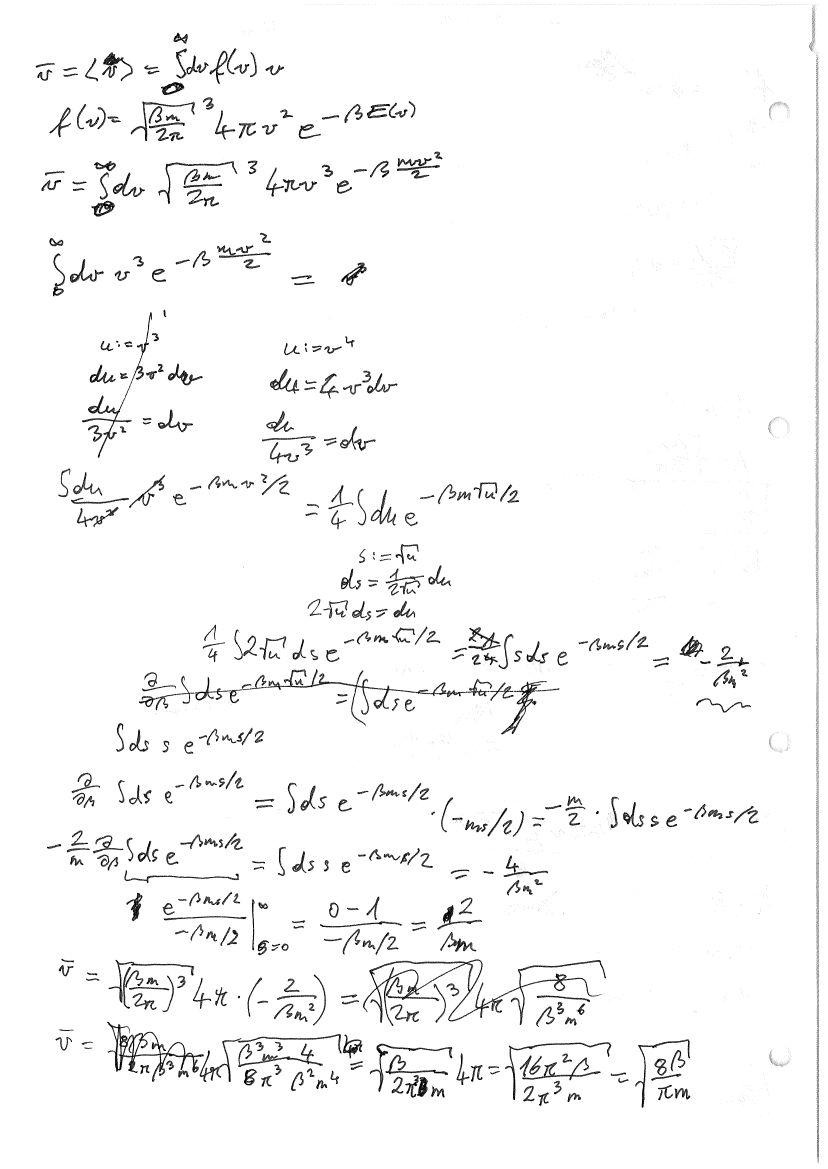 v̄ = ⟨v⟩ = ∫₀^∞ dv f(v) v
f(v) = √(βm/2π)³ 4πv² e^(−βE(v))
v̄ = ∫₀^∞ dv √(βm/2π)³ 4πv³ e^(−β mv²/2)
∫₀^∞ dv v³ e^(−β mv²/2) =
u := v³    u := v⁴
du = 3v² dv    du = 4v³ dv
du/3v² = dv    du/4v³ = dv
∫ du/4v³ v³ e^(−βmv²/2) = 1/4 ∫ du e^(−βm√u/2)
s := √u
ds = 1/(2√u) du
2√u ds = du
1/4 ∫ 2√u ds e^(−βm√u/2) = 1/2 ∫ s ds e^(−βms/2) = − 2/βm²
∂/∂β ∫ ds e^(−βm√u/2) = (∫ ds e^(−βm√u/2)
∫ ds s e^(−βms/2)
∂/∂β ∫ ds e^(−βms/2) = ∫ ds e^(−βms/2) · (−ms/2) = −m/2 · ∫ ds s e^(−βms/2)
−2/m ∂/∂β ∫ ds e^(−βms/2) = ∫ ds s e^(−βms/2) = − 4/βm²
e^(−βms/2)/(−βm/2) |_(s=0)^∞ = (0−1)/(−βm/2) = 2/βm
v̄ = √(βm/2π)³ 4π · (−2/βm²) = √(βm/2π)³ 4π √(8/β³m⁶)
v̄ = 4π √(β³m³ 4/8π³ β²m⁴) = √(β/2π³m) 4π = √(16π²β/2π³m) = √(8β/πm)